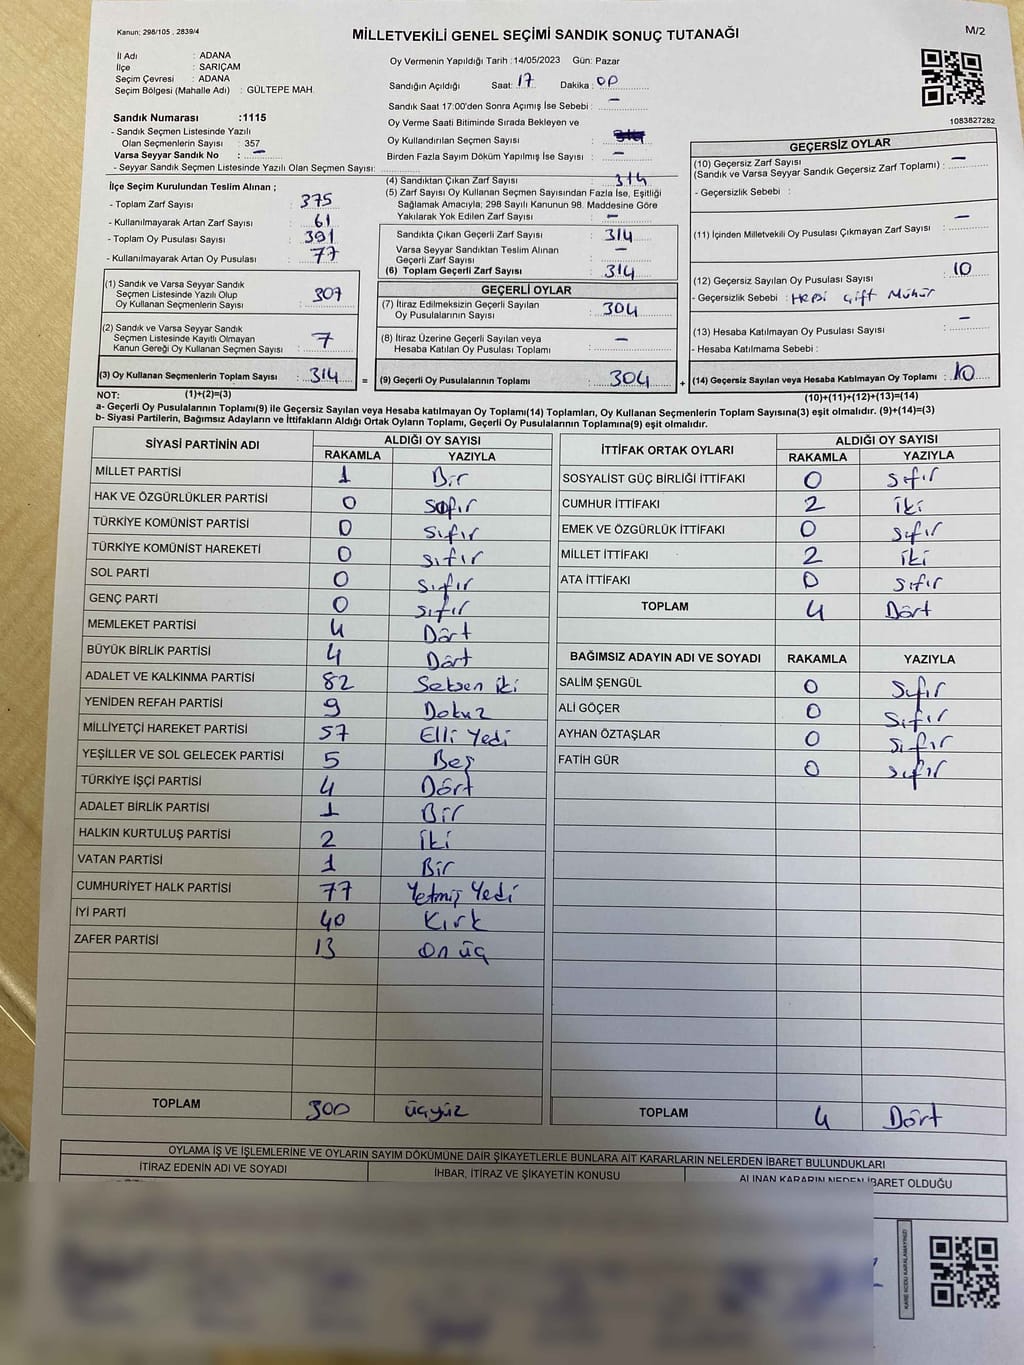 Kanun: 298/105 , 2839/4
MİLLETVEKİLİ GENEL SEÇİMİ SANDIK SONUÇ TUTANAĞI
M/2
İl Adı : ADANA
İlçe : SARIÇAM
Seçim Çevresi : ADANA
Seçim Bölgesi (Mahalle Adı) : GÜLTEPE MAH.
Oy Vermenin Yapıldığı Tarih :14/05/2023 Gün: Pazar
Sandığın Açıldığı Saat: 17 Dakika : 00
Sandık Saat 17:00'den Sonra Açımış İse Sebebi : –
Oy Verme Saati Bitiminde Sırada Bekleyen ve
Oy Kullandırılan Seçmen Sayısı :
Birden Fazla Sayım Döküm Yapılmış İse Sayısı : –
1083827282
Sandık Numarası :1115
- Sandık Seçmen Listesinde Yazılı
Olan Seçmenlerin Sayısı : 357
Varsa Seyyar Sandık No : –
- Seyyar Sandık Seçmen Listesinde Yazılı Olan Seçmen Sayısı:
İlçe Seçim Kurulundan Teslim Alınan ;
- Toplam Zarf Sayısı : 375
- Kullanılmayarak Artan Zarf Sayısı : 61
- Toplam Oy Pusulası Sayısı : 391
- Kullanılmayarak Artan Oy Pusulası : 77
(1) Sandık ve Varsa Seyyar Sandık
Seçmen Listesinde Yazılı Olup
Oy Kullanan Seçmenlerin Sayısı : 307
(2) Sandık ve Varsa Seyyar Sandık
Seçmen Listesinde Kayıtlı Olmayan
Kanun Gereği Oy Kullanan Seçmen Sayısı : 7
(3) Oy Kullanan Seçmenlerin Toplam Sayısı : 314 =
(4) Sandıktan Çıkan Zarf Sayısı : 314
(5) Zarf Sayısı Oy Kullanan Seçmen Sayısından Fazla İse, Eşitliği
Sağlamak Amacıyla; 298 Sayılı Kanunun 98. Maddesine Göre
Yakılarak Yok Edilen Zarf Sayısı : –
Sandıkta Çıkan Geçerli Zarf Sayısı : 314
Varsa Seyyar Sandıktan Teslim Alınan
Geçerli Zarf Sayısı : –
(6) Toplam Geçerli Zarf Sayısı : 314
GEÇERLİ OYLAR
(7) İtiraz Edilmeksizin Geçerli Sayılan
Oy Pusulalarının Sayısı : 304
(8) İtiraz Üzerine Geçerli Sayılan veya
Hesaba Katılan Oy Pusulası Toplamı : –
(9) Geçerli Oy Pusulalarının Toplamı : 304 +
GEÇERSİZ OYLAR
(10) Geçersiz Zarf Sayısı
(Sandık ve Varsa Seyyar Sandık Geçersiz Zarf Toplamı) : –
- Geçersizlik Sebebi :
(11) İçinden Milletvekili Oy Pusulası Çıkmayan Zarf Sayısı : –
(12) Geçersiz Sayılan Oy Pusulası Sayısı : 10
- Geçersizlik Sebebi : Hepsi Çift Mühür
(13) Hesaba Katılmayan Oy Pusulası Sayısı : –
- Hesaba Katılmama Sebebi :
(14) Geçersiz Sayılan veya Hesaba Katılmayan Oy Toplamı : 10
NOT: (1)+(2)=(3)
(10)+(11)+(12)+(13)=(14)
a- Geçerli Oy Pusulalarının Toplamı(9) ile Geçersiz Sayılan veya Hesaba katılmayan Oy Toplamı(14) Toplamları, Oy Kullanan Seçmenlerin Toplam Sayısına(3) eşit olmalıdır. (9)+(14)=(3)
b- Siyasi Partilerin, Bağımsız Adayların ve İttifakların Aldığı Ortak Oyların Toplamı, Geçerli Oy Pusulalarının Toplamına(9) eşit olmalıdır.
SİYASİ PARTİNİN ADI ALDIĞI OY SAYISI
RAKAMLA YAZIYLA
MİLLET PARTİSİ 1 Bir
HAK VE ÖZGÜRLÜKLER PARTİSİ 0 Sıfır
TÜRKİYE KOMÜNİST PARTİSİ 0 Sıfır
TÜRKİYE KOMÜNİST HAREKETİ 0 Sıfır
SOL PARTİ 0 Sıfır
GENÇ PARTİ 0 Sıfır
MEMLEKET PARTİSİ 4 Dört
BÜYÜK BİRLİK PARTİSİ 4 Dört
ADALET VE KALKINMA PARTİSİ 82 Seksen iki
YENİDEN REFAH PARTİSİ 9 Dokuz
MİLLİYETÇİ HAREKET PARTİSİ 57 Elli Yedi
YEŞİLLER VE SOL GELECEK PARTİSİ 5 Beş
TÜRKİYE İŞÇİ PARTİSİ 4 Dört
ADALET BİRLİK PARTİSİ 1 Bir
HALKIN KURTULUŞ PARTİSİ 2 İki
VATAN PARTİSİ 1 Bir
CUMHURİYET HALK PARTİSİ 77 Yetmiş Yedi
İYİ PARTİ 40 Kırk
ZAFER PARTİSİ 13 On üç
TOPLAM 300 üçyüz
İTTİFAK ORTAK OYLARI ALDIĞI OY SAYISI
RAKAMLA YAZIYLA
SOSYALİST GÜÇ BİRLİĞİ İTTİFAKI 0 Sıfır
CUMHUR İTTİFAKI 2 iki
EMEK VE ÖZGÜRLÜK İTTİFAKI 0 Sıfır
MİLLET İTTİFAKI 2 iki
ATA İTTİFAKI 0 Sıfır
TOPLAM 4 Dört
BAĞIMSIZ ADAYIN ADI VE SOYADI RAKAMLA YAZIYLA
SALİM ŞENGÜL 0 Sıfır
ALİ GÖÇER 0 Sıfır
AYHAN ÖZTAŞLAR 0 Sıfır
FATİH GÜR 0 Sıfır
TOPLAM 4 Dört
OYLAMA İŞ VE İŞLEMLERİNE VE OYLARIN SAYIM DÖKÜMÜNE DAİR ŞİKAYETLERLE BUNLARA AİT KARARLARIN NELERDEN İBARET BULUNDUKLARI
İTİRAZ EDENİN ADI VE SOYADI İHBAR, İTİRAZ VE ŞİKAYETİN KONUSU ALINAN KARARIN NEDEN İBARET OLDUĞU
KARE KODU KARALAMAYINIZ!